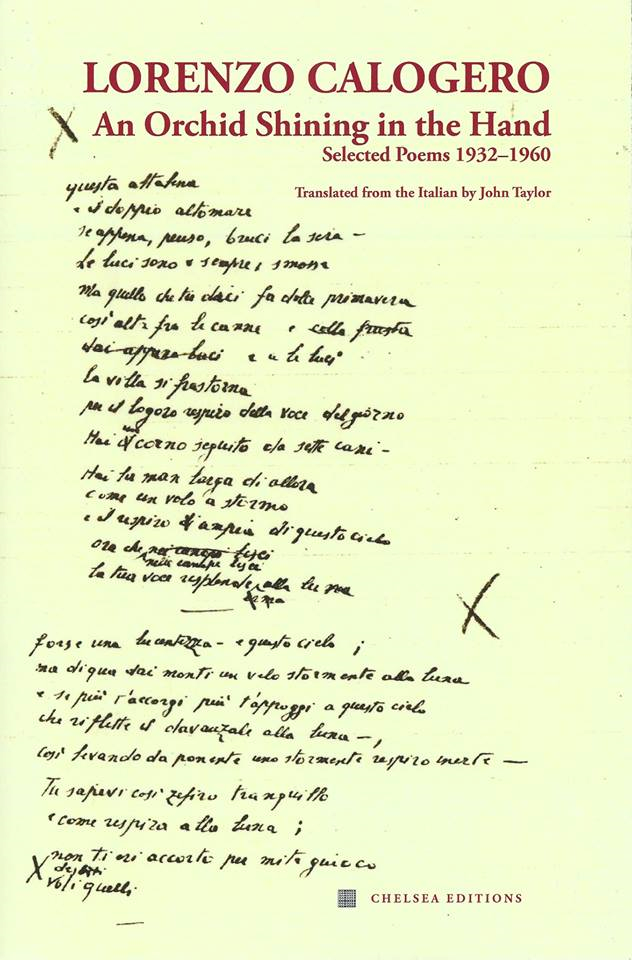 LORENZO CALOGERO
An Orchid Shining in the Hand
Selected Poems 1932–1960
Translated from the Italian by John Taylor
questa altalena
e il doppio altomare
se appena, penso, bruci la sera –
Le luci sono e sempre, smosse
Ma quello che tu daci fa dolce primavera
così alta fra le canne e colla frusta
dai appena baci e a le luci
la villa si frastorna
per il logoro respiro della voce del giorno
Hai un corno seguito da sette cani –
Hai la man larga di allora
come un volo a stormo
e il respiro d'ampia di questo cielo
ora che nei campi lisci
nei campi lisci
la tua voce risplende alla luna
forse una lucentezza – e questo cielo ;
ma di qua dai monti un velo stormente alla luna
e se più t'accorgi più t'appoggi a questo cielo
che riflette il davanzale alla luna –,
così levando da ponente uno stormente respiro inerte —
Tu sapevi così zefiro tranquillo
e come respira alla luna ;
non ti eri accorto per mite giuoco
voli quelli
CHELSEA EDITIONS